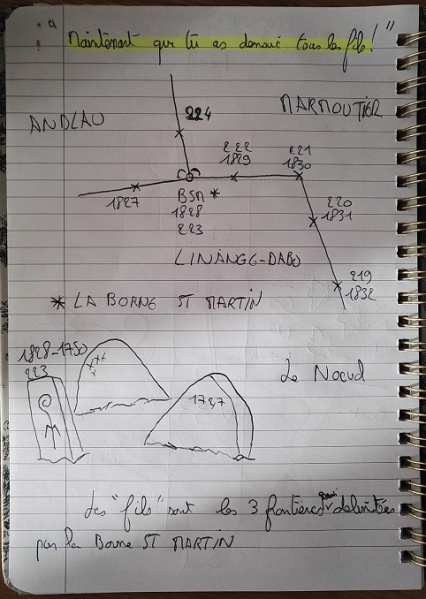 : " Maintenant que tu as denoué tous les fils ! "
224
MARMOUTIER
ANDLAU
222
1829
221
1830
1827
BSM *
1828
223
220
1831
LINANGE-DABO
219
1832
* LA BORNE ST MARTIN
1828-1750
223
Le Noeud
M
1727
Les "fils" sont les 3 frontières délimitées
par la Borne ST MARTIN